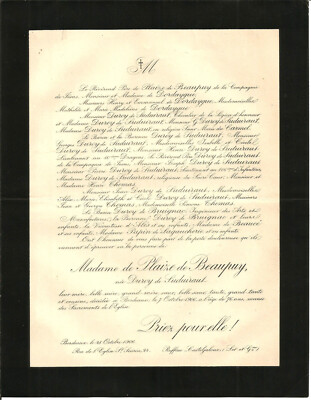 M
Le Révérend Père de Plaize de Beaupuy de la Compagnie
de Jésus, Monsieur et Madame de Dordaygue,
Messieurs Henry et Emmanuel de Dordaygue, Mesdemoiselles
Mathilde et Marie Madeleine de Dordaygue,
Monsieur Duroy de Suduiraut, Chevalier de la Légion d'honneur
et Madame Duroy de Suduiraut, Monsieur G. Duroy de Suduiraut,
Madame Duroy de Suduiraut, en religion Sœur Marie du Carmel,
Le Baron et la Baronne Duroy de Suduiraut, Monsieur
Georges Duroy de Suduiraut, Mesdemoiselles Isabelle et Cécile
Duroy de Suduiraut, Monsieur Henri Duroy de Suduiraut,
Lieutenant au Dragons, le Révérend Père Duroy de Suduiraut
de la Compagnie de Jésus, Monsieur Joseph Duroy de Suduiraut,
Monsieur Pierre Duroy de Suduiraut, Lieutenant au d'Infanterie,
Madame Duroy de Suduiraut, Religieuse du Sacré Cœur, Monsieur et
Madame Henri Thomas,
Monsieur Jean Duroy de Suduiraut, Mesdemoiselles
Alice, Marie, Elisabeth et Cécile Duroy de Suduiraut, Messieurs
Jean et Georges Thomas, Mademoiselle Thomas,
Le Baron Duroy de Bruignac, Ingénieur des Arts et
Manufactures, la Baronne Duroy de Bruignac et leurs
enfants, la et ses enfants, Madame de
et ses enfants, Madame et ses enfants,
Ont l'honneur de vous faire part de la perte douloureuse qu'ils
viennent d'éprouver en la personne de
Madame de Plaize de Beaupuy,
née Duroy de Suduiraut,
leur mère, belle-mère, grand'mère, sœur, belle-sœur, tante, grand'tante
et cousine, décédée à Bordeaux, le Octobre 1900, à l'âge de 76 ans, munie
des Sacrements de l'Eglise.
Priez pour elle!
Bordeaux, le Octobre 1900.
Rue de l'Eglise St Seurin,